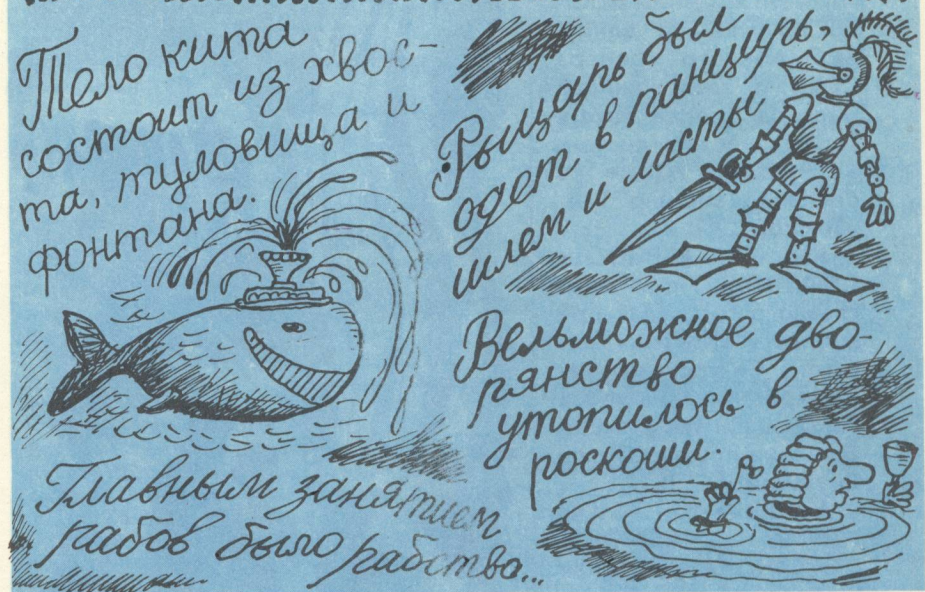 Тело кита
состоит из хвос-
та, туловища и
фонтана.
Рыцарь был
одет в панцирь,
шлем и ласты
Вельможное дво-
рянство
утопилось в
роскоши.
Главным занятием
рабов было рабство...